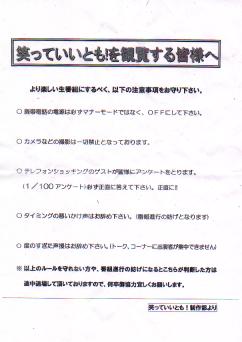 笑っていいとも!を観覧する皆様へ
より楽しい生番組にするべく、以下の注意事項をお守り下さい。
○ 携帯電話の電源は必ずマナーモードではなく、OFFにして下さい。
○ カメラなどの撮影は一切禁止となっております。
○ テレフォンショッキングのゲストが皆様にアンケートをとります。
(1/100アンケート)必ず正直に答えて下さい。正直に!!
○ タイミングの悪いかけ声はお辞め下さい。(番組進行の妨げとなります)
○ 度のすぎた声援はお辞め下さい。(トーク、コーナーに出演者が集中できません)
※ 以上のルールを守れない方や、番組進行の妨げになるとこちらが判断した方は
途中退場して頂いておりますので、何卒御協力宜しくお願いします。
笑っていいとも!制作部より